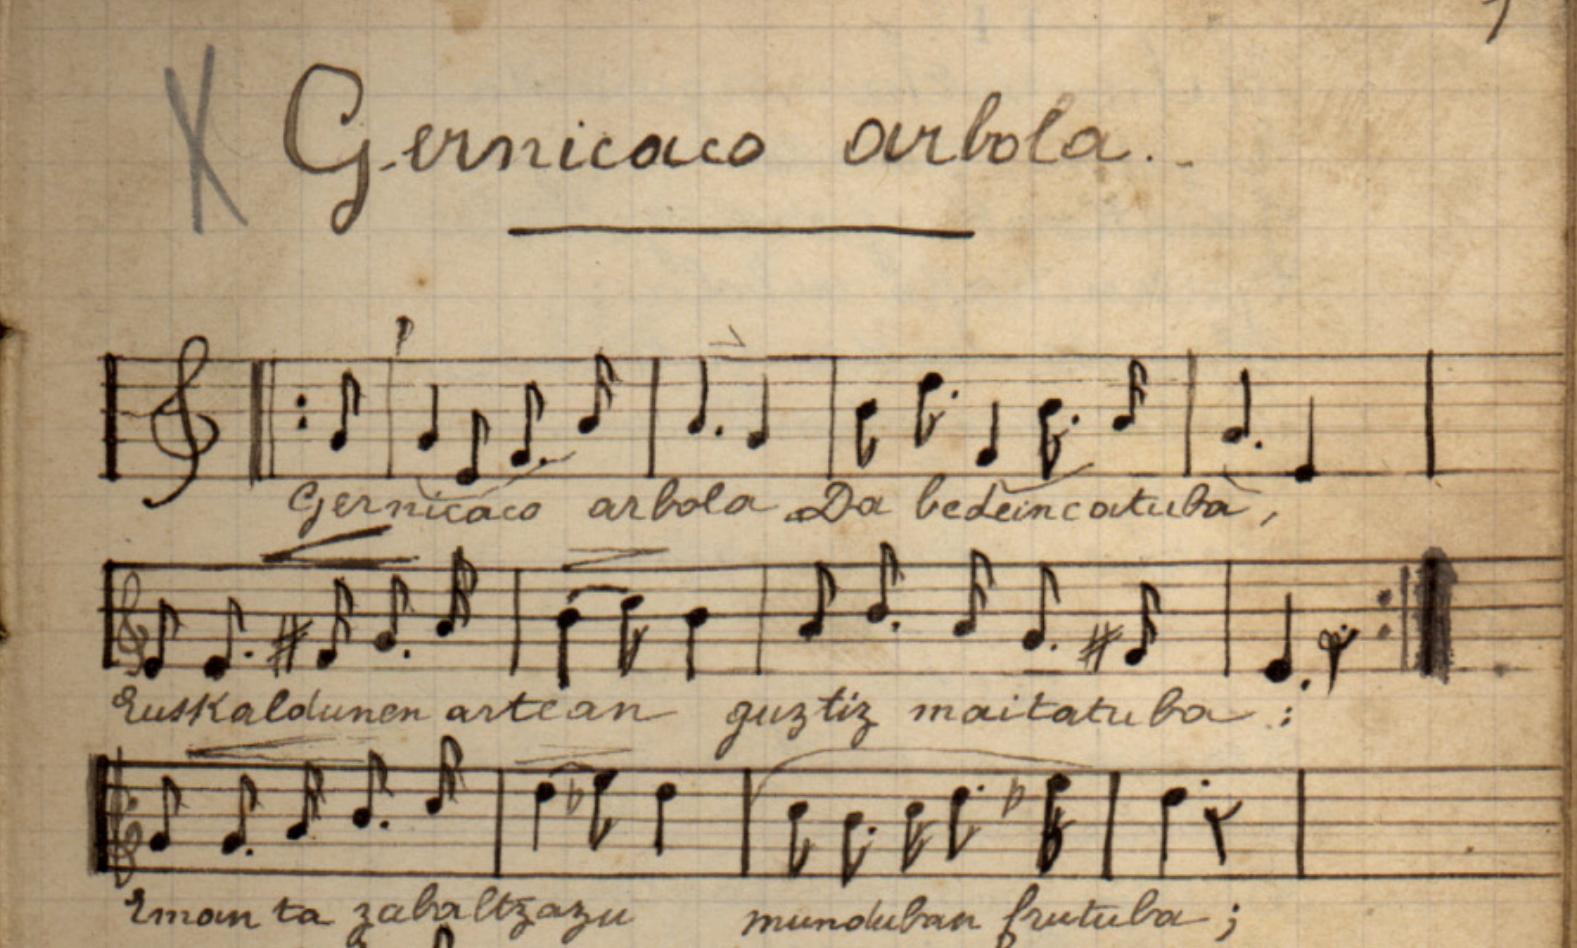 Gernicaco arbola.
Gernicaco arbola Da bedeincatuba,
Euskaldunen artean guztiz maitatuba:
Eman ta zabaltzazu munduban frutuba;